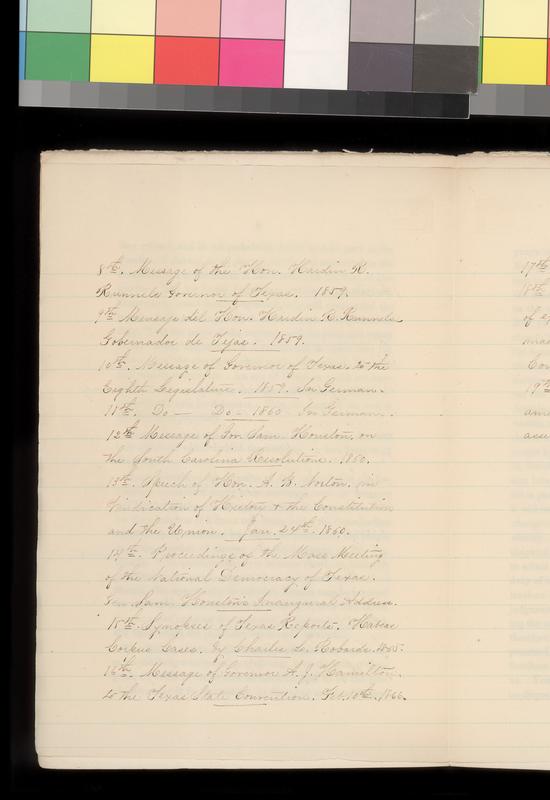 8th. Message of the Hon. Hardin R.
Runnels Governor of Texas. 1859.
9th Mensaje del Hon. Hardin R. Runnels
Gobernador de Tejas. 1859.
10th. Message of Governor of Texas to the
Eighth Legislature. 1859. In German.
11th. Do — Do — 1860 In German.
12th Message of Gov Sam. Houston, on
the South Carolina Resolutions. 1860.
13th. Speech of Hon. A. B. Norton, in
Vindication of History & the Constitution
and the Union. Jan. 24th. 1860.
14th. Proceedings of the Mass Meeting
of the National Democracy of Texas.
Gen Sam. Houston's Inaugural Address.
15th. Synopses of Texas Reports. Habeas
Corpus Cases. by Charles L. Robards. 1865.
16th. Message of Governor A. J. Hamilton.
to the Texas State Convention. Feb. 10th. 1866.
17th
18th
of
19th